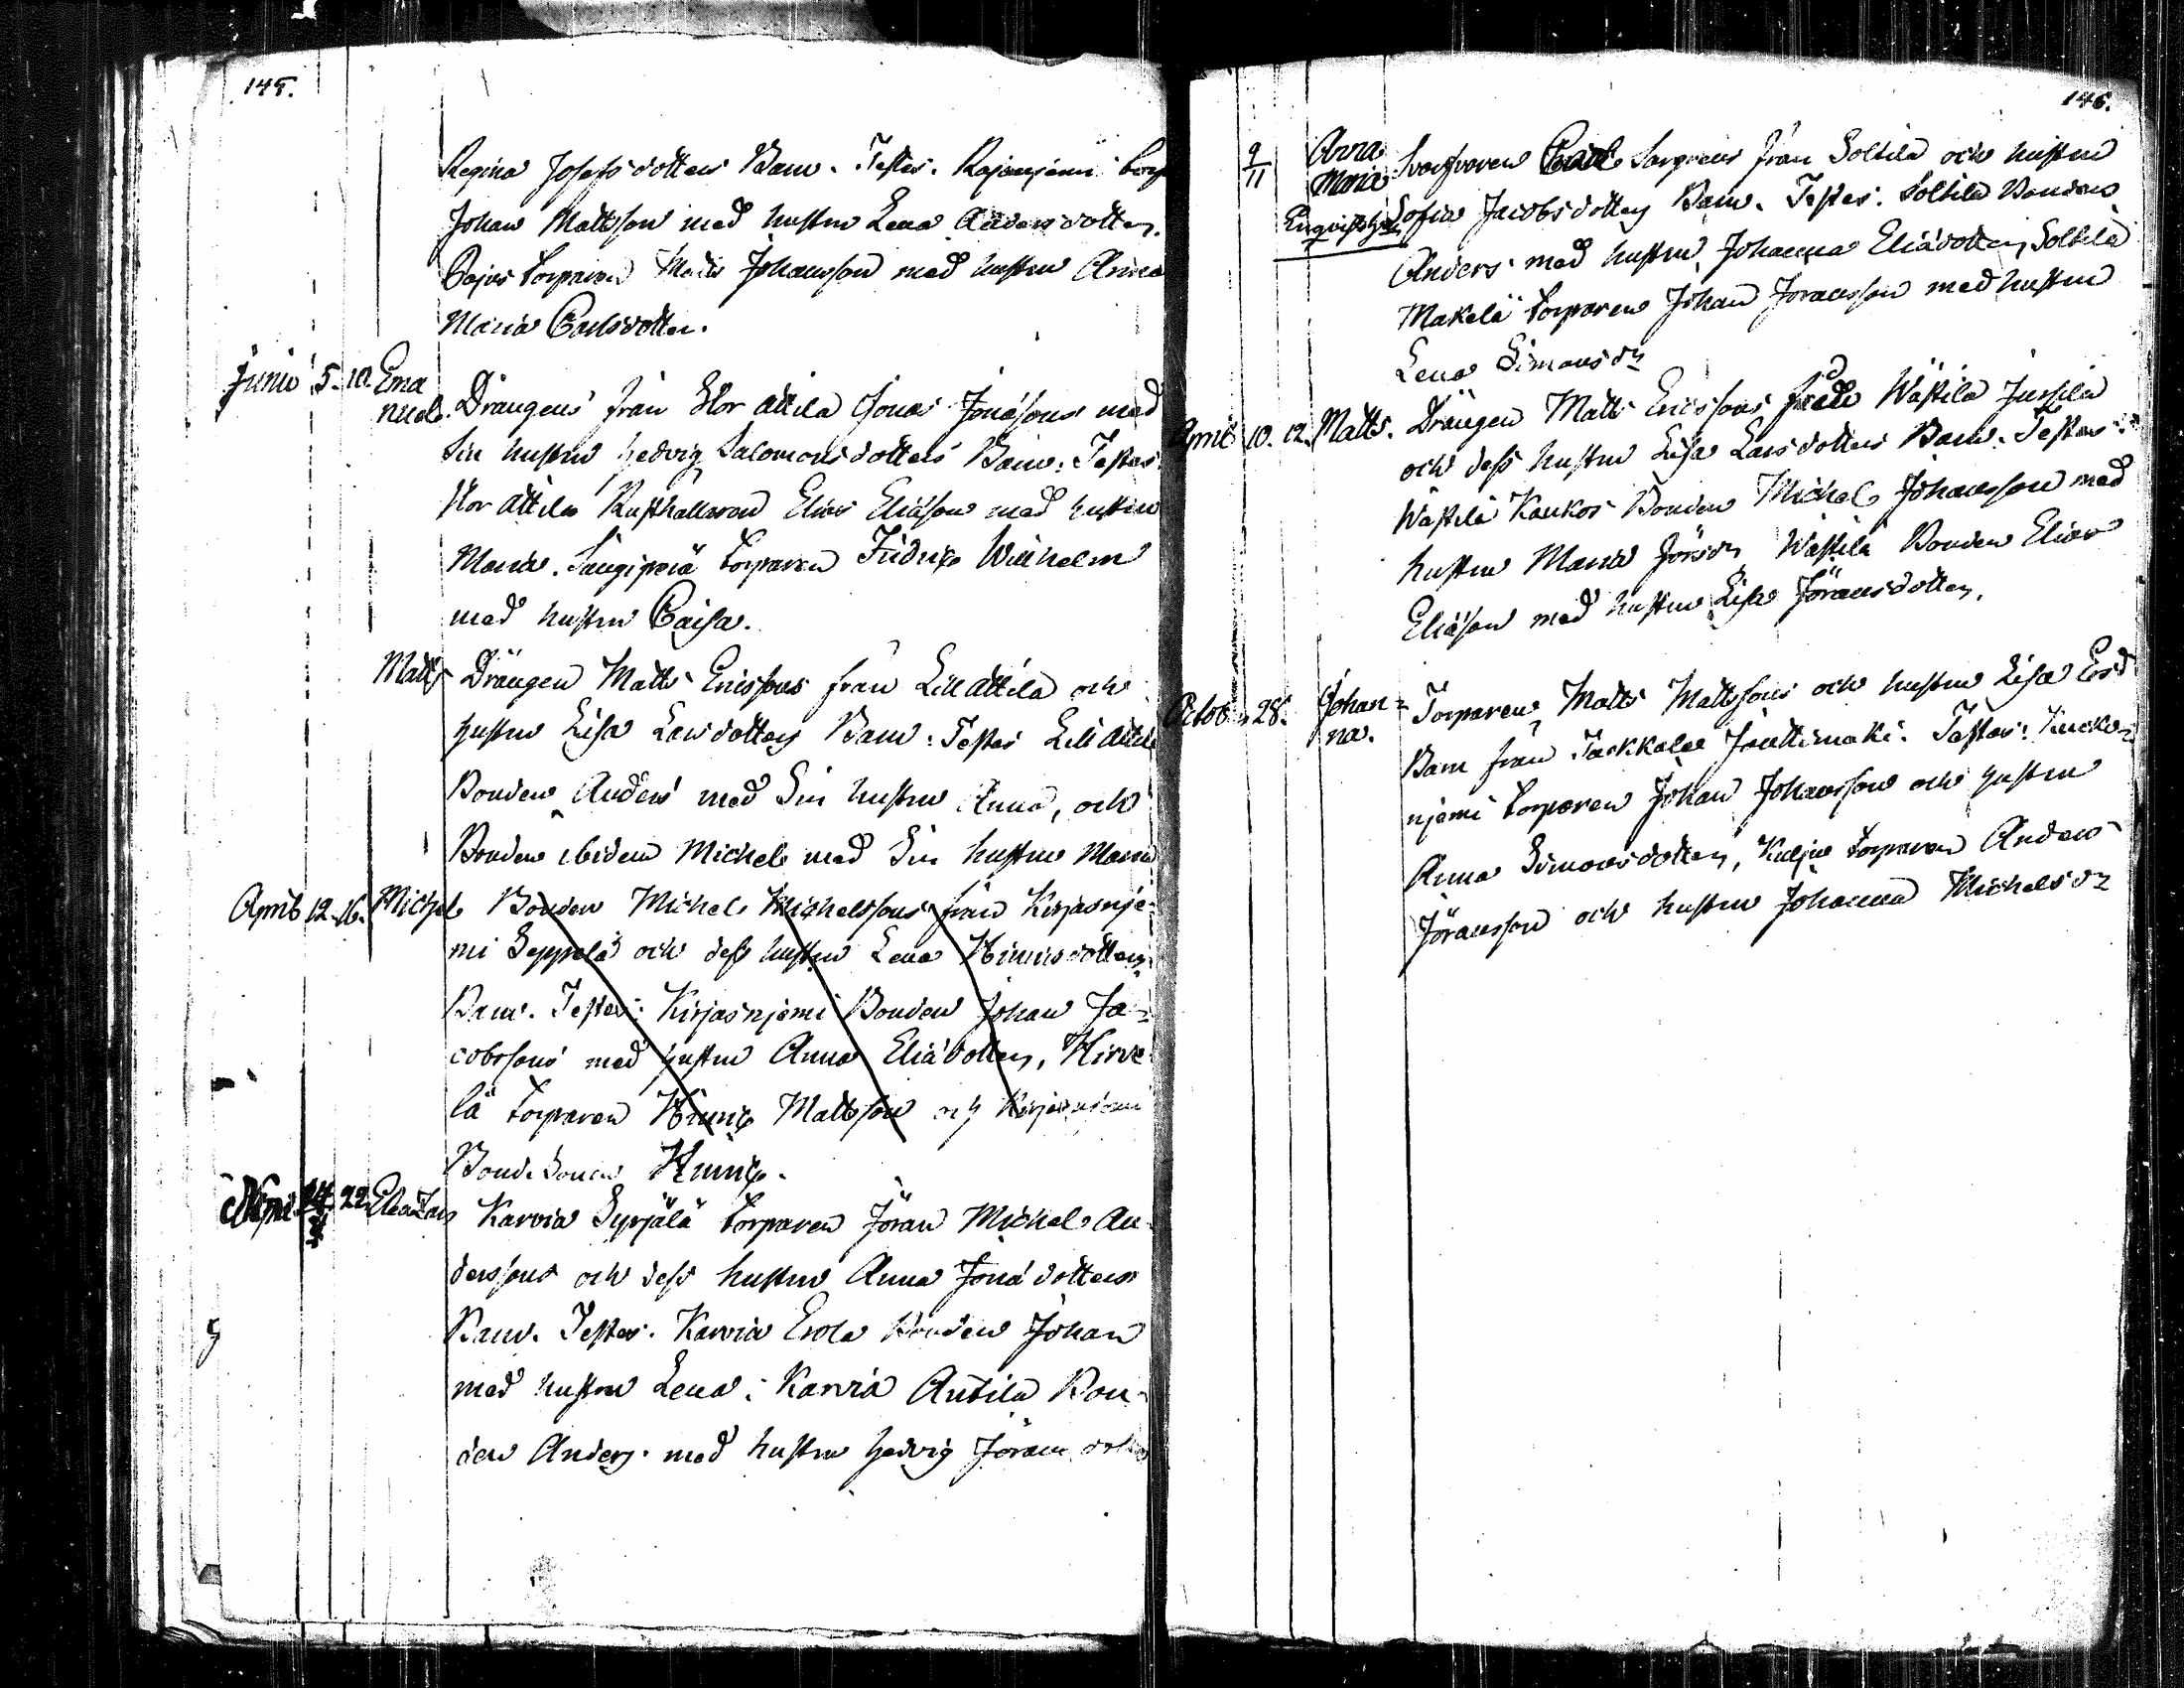 145.
Regina Josefsdotters Barn. Testes. Rajanjemi torp
Johan Mattsson med hustru Lena Andersdotter.
Torparen Matts Johansson med hustru Anna
Maria Carlsdotter.
Junii 5. 10. Ema
nuel. Drängens från Stor Attila Jonas Jonæsons med
sin hustru Hedvig Salomonsdotters Barn. Testes
Stor Attila Rusthållaren Elias Eliæson med hustru
Maria. Torparen Fridric Willhelm
med hustru Caisa.
Matts Drängen Matts Ericssons från Lill Attila och
hustru Lisa Larsdotters Barn. Testes Lill Attila
Bonden Anders med Sin hustru Anna, och
Bonden ibidem Michel med Sin hustru Maria
April 12. 16. Michel Bonden Michel Michelssons från Kirjasnje-
mi Seppelä och dess hustru Lena Hinricsdotters
Barn. Testes: Kirjasnjemi Bonden Johan Ja-
cobssons med hustru Anna Eliædotter, Hirve-
lä torparen Hinric Mattsson och Kirjasnjemi
Bonde Sonen Hinric.
22. Karvia Syrjälä torparen Jöran Michel An-
derssons och dess hustru Anna Jonædotters
Barn. Testes. Karvia Erola Bonden Johan
med hustru Lena: Karvia Antila Bon-
den Anders med hustru Hedvig Jöransdotter
146.
9/11 Anna
Maria från Soltila och hustru
Sofia Jacobsdotters Barn. Testes. Soltila Bonden
Anders med hustru Johanna Eliædotter, Soltila
Makelä torparen Johan Joransson med hustru
Lena Simonsdr
April 10. 12. Matts. Drängen Matts Ericssons från Wästilä Jussila
och dess hustru Lisa Larsdotters Barn. Testes:
Wästilä Kaukos Bonden Michel Johansson med
hustru Maria Wästilä Bonden Elias
Eliæson med hustru Lisa Jöransdotter.
Octob. 28. Johan-
na. Torparen Matts Mattssons och hustru Lisa
Barn från Jaakkala Jouttimaki. Testes:
njemi torparen Johan Johansson och hustru
Anna Simonsdotter, torparen Anders
Jöransson och hustru Johanna Michelsdr